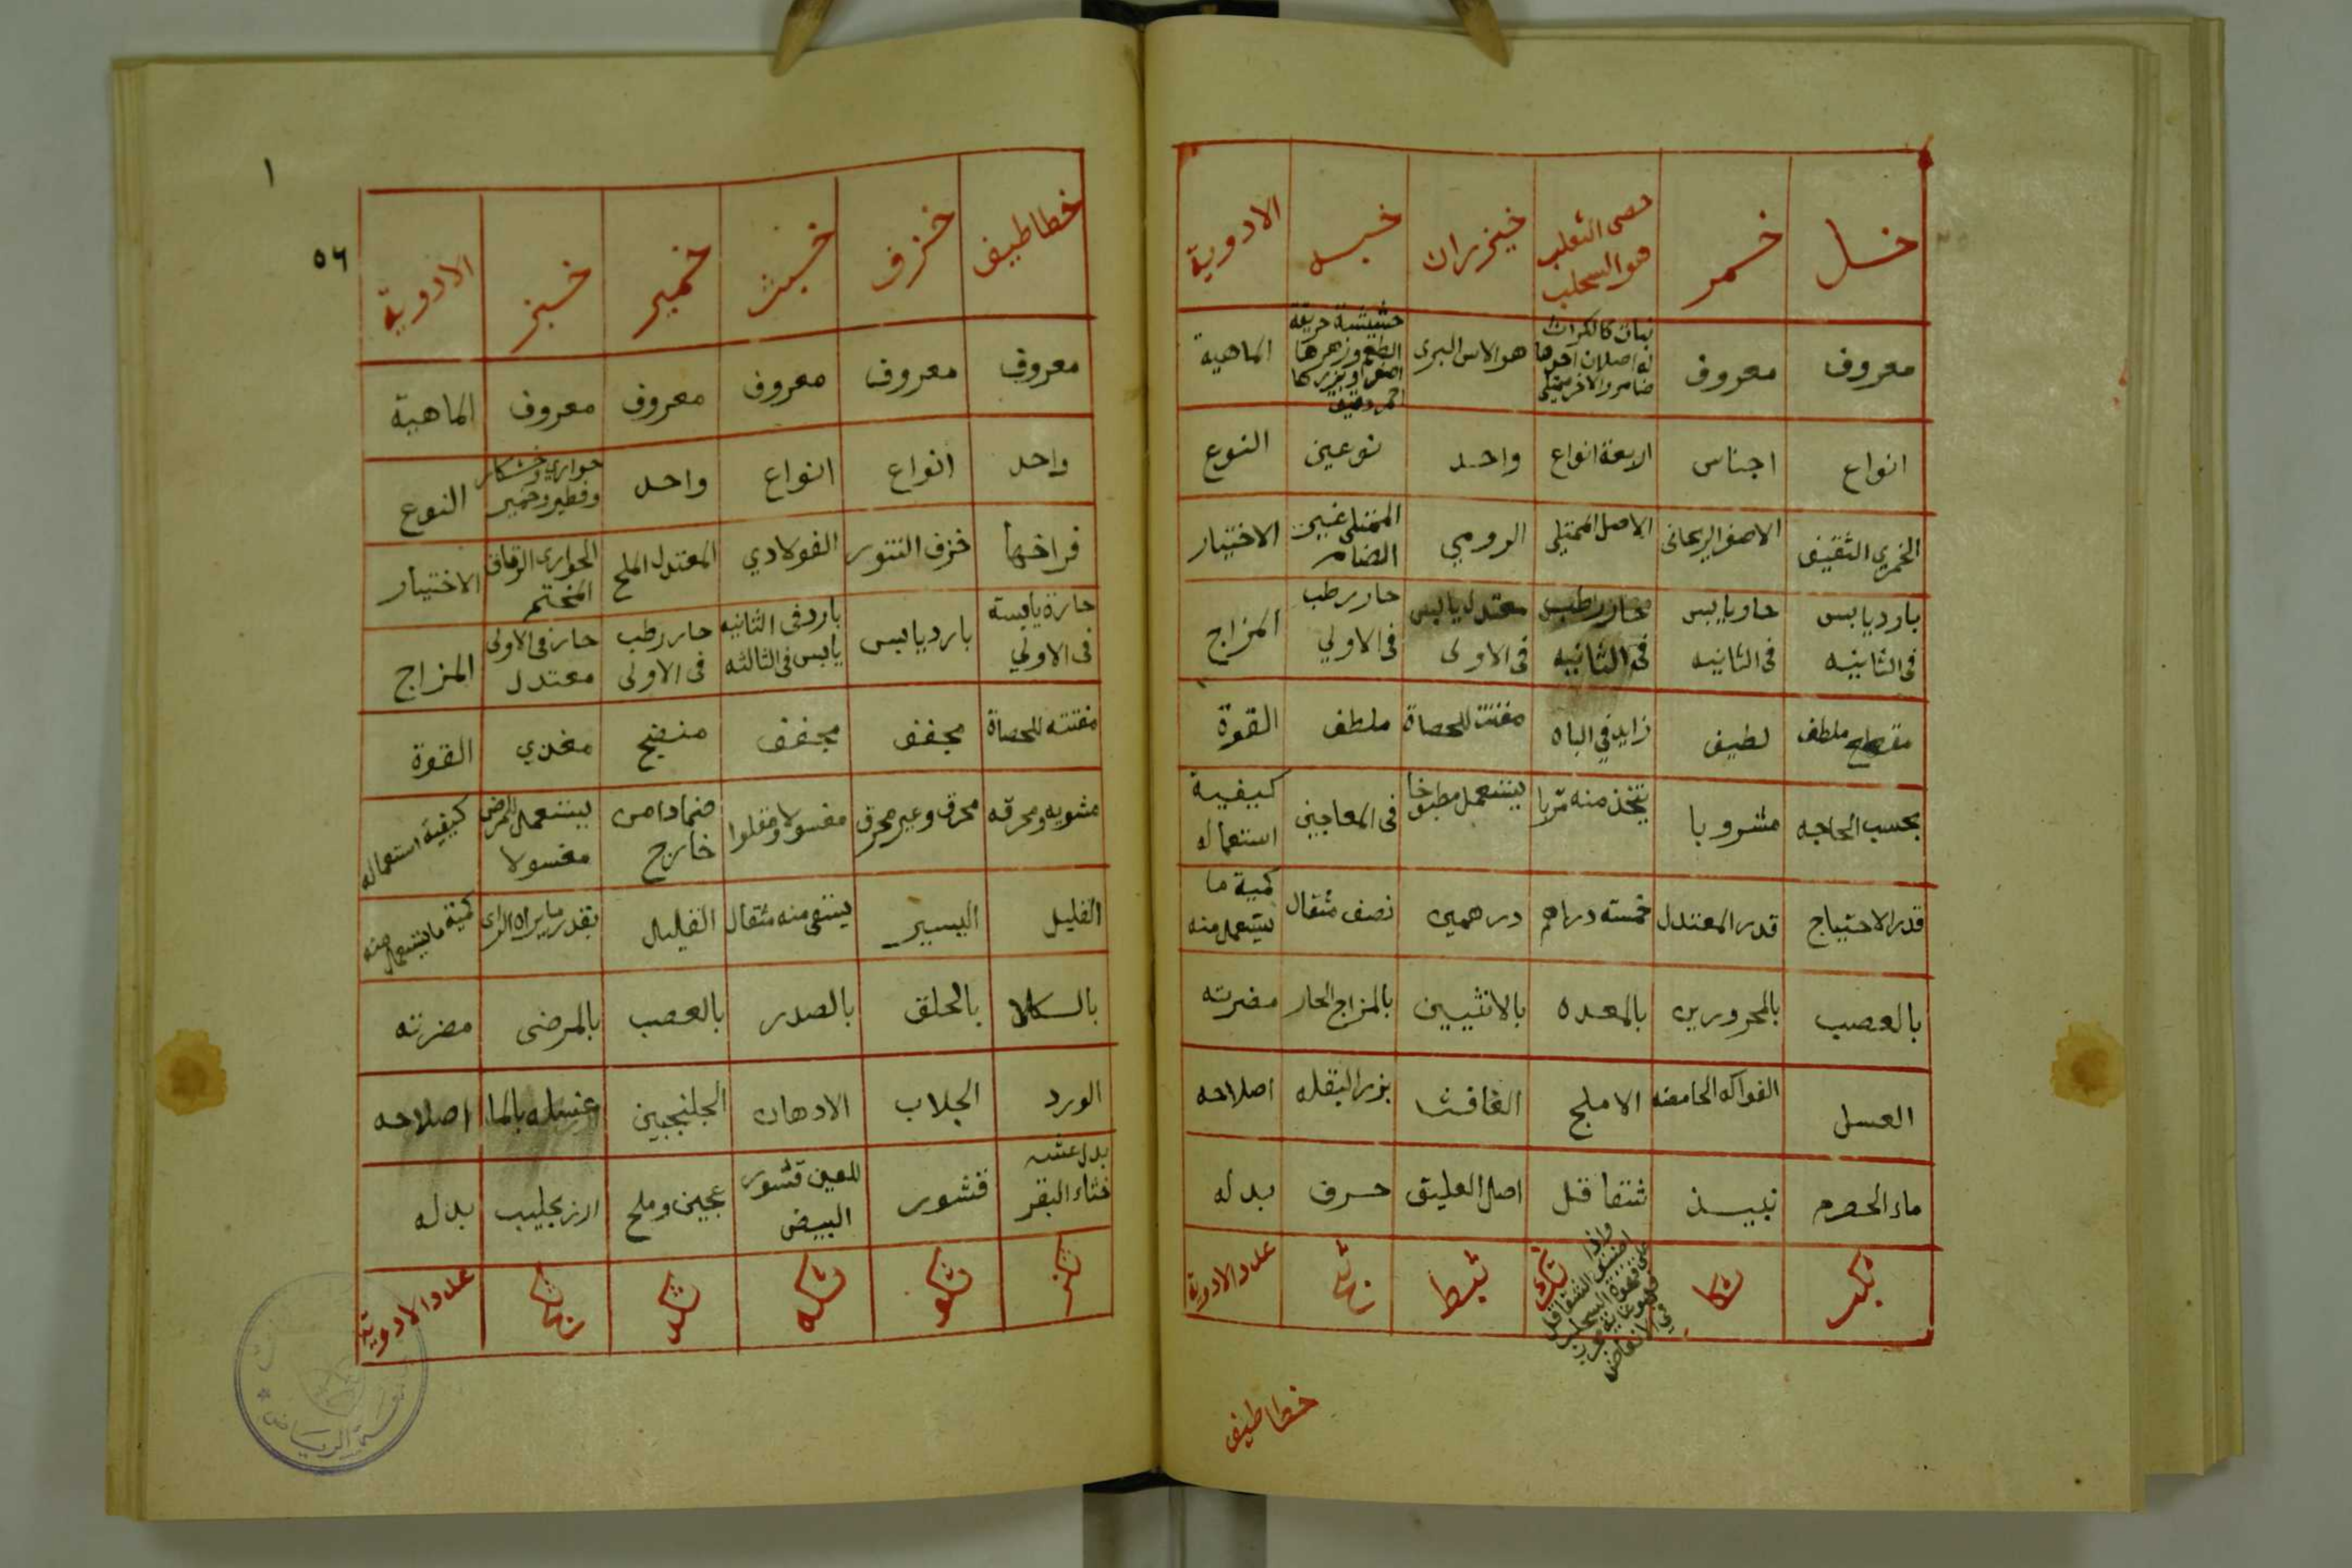 خل خمر خصى الثعلب هو السحلب خيزران خبه الادوية
معروف معروف نبات كالكراث له اصلان احدهما ضامر والاخر ممتلى هو الاس البرى حشيشة حريفة الطعم وزهرها اصفر وبزرها احمر دقيق الماهية
انواع اجناس الاربعة انواع واحد نوعين النوع
الخمري الثقيف الاصفر الريحانى الاصل الممتلى الرومي الممتلى غير الضامر الاختيار
بارد يابس فى الثانيه حار يابس فى الثانيه حار رطب فى الثانيه معتدل يابس فى الاولى حار رطب فى الاولي المزاج
مقطع ملطف لطيف زايد في الباه مفتت للحصاة ملطف القوة
بحسب الحاجه مشروبا يتخذ منه مربا يستعمل مطبوخا فى المعاجين كيفية استعماله
قدر الاحتياج قدر المعتدل خمسته دراهم درهمين نصف مثقال كمية ما يستعمل منه
بالعصب بالمحرورين بالمعده بالانثيين بالمزاج الحار مضرته
العسل الفواكه الحامضه الاملج الغافث بزر البقله اصلاحه
ماء الحصرم نبيذ شقاقل اصل العليق حرف بدله
شكب شكا شك شيط شيح عدد الادوية
واذا اضيف الشقاقل على قهوة السحلب فهو غاية عزيز في الانعاض
خطاطيف
١
٥٦
خطاطيف خزف خبث خمير خبز الادوية
معروف معروف معروف معروف معروف الماهية
واحد انواع انواع واحد حوارى وخشكار وفطير وخمير النوع
فراخها خزف التنور الفولادي المعتدل الملح الحوارى الرقاق المختمر الاختيار
حارة يابسة فى الاولي بارد يابس بارد فى الثانيه يابس فى الثالثه حار رطب فى الاولى حار فى الاولى معتدل المزاج
مفتته للحصاة مجفف مجفف منضج مغدي القوة
مشويه ومحرقه محرق وغير محرق مغسولا ومقلوا ضمادا من خارج يستعمل للمرضى مغسولا كيفية استعماله
القليل اليسير يستقى منه مثقال القليل بقدر ما يراه الراى كمية ما يستعمل منه
بالكلا بالحلق بالصدر بالعصب بالمرضى مضرته
الورد الجلاب الادهان الجلنجبين غسله بالما اصلاحه
بدل عشه خثاء البقر قشور للعين قشور البيض عجين وملح ارز بحليب بدله
شكز شكو شكه شكد شكج عدد الادوية
الرياض